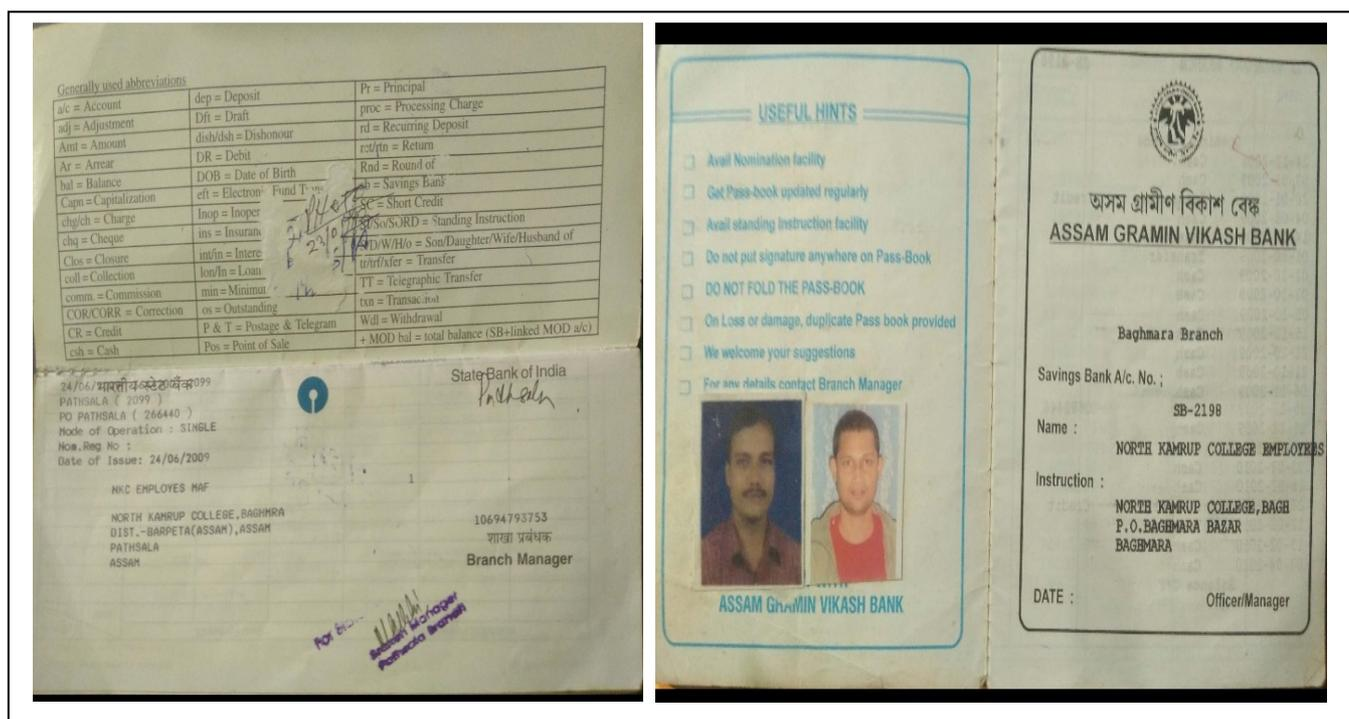 Generally used abbreviations
a/c = Account dep = Deposit Pr = Principal
adj = Adjustment Dft = Draft proc = Processing Charge
Amt = Amount dish/dsh = Dishonour rd = Recurring Deposit
Ar = Arrear DR = Debit ret/rtn = Return
bal = Balance DOB = Date of Birth Rnd = Round of
Capn = Capitalization eft = Electron Fund = Savings Bank
chg/ch = Charge Inop = Inoper SC = Short Credit
chq = Cheque ins = Insuran SI/So/SORD = Standing Instruction
Clos = Closure int/in = Intere /D/W/H/o = Son/Daughter/Wife/Husband of
coll = Collection lon/ln = Loan tr/trf/xfer = Transfer
comm. = Commission min = Minimu TT = Telegraphic Transfer
COR/CORR = Correction os = Outstanding txn = Transaction
CR = Credit P & T = Postage & Telegram Wdl = Withdrawal
csh = Cash Pos = Point of Sale + MOD bal = total balance (SB+linked MOD a/c)
24/06/ भारतीय स्टेट बैंक 2099
State Bank of India
PATHSALA ( 2099 )
Pathsala
PO PATHSALA ( 266440 )
Mode of Operation : SINGLE
Nom.Reg No :
Date of Issue: 24/06/2009
1
NKC EMPLOYES MAF
NORTH KAMRUP COLLEGE,BAGHMRA
DIST.-BARPETA(ASSAM),ASSAM
PATHSALA
ASSAM
10694793753
शाखा प्रबंधक
Branch Manager
Branch Manager
Pathsala Branch
USEFUL HINTS
Avail Nomination facility
Get Pass-book updated regularly
Avail standing Instruction facility
Do not put signature anywhere on Pass-Book
DO NOT FOLD THE PASS-BOOK
On Loss or damage, duplicate Pass book provided
We welcome your suggestions
For any details contact Branch Manager
ASSAM GRAMIN VIKASH BANK
অসম গ্রামীণ বিকাশ বেঙ্ক
ASSAM GRAMIN VIKASH BANK
Baghmara Branch
Savings Bank A/c. No. ;
SB-2198
Name :
NORTH KAMRUP COLLEGE EMPLOYEES
Instruction :
NORTH KAMRUP COLLEGE,BAGH
P.O.BAGHMARA BAZAR
BAGHMARA
DATE :
Officer/Manager